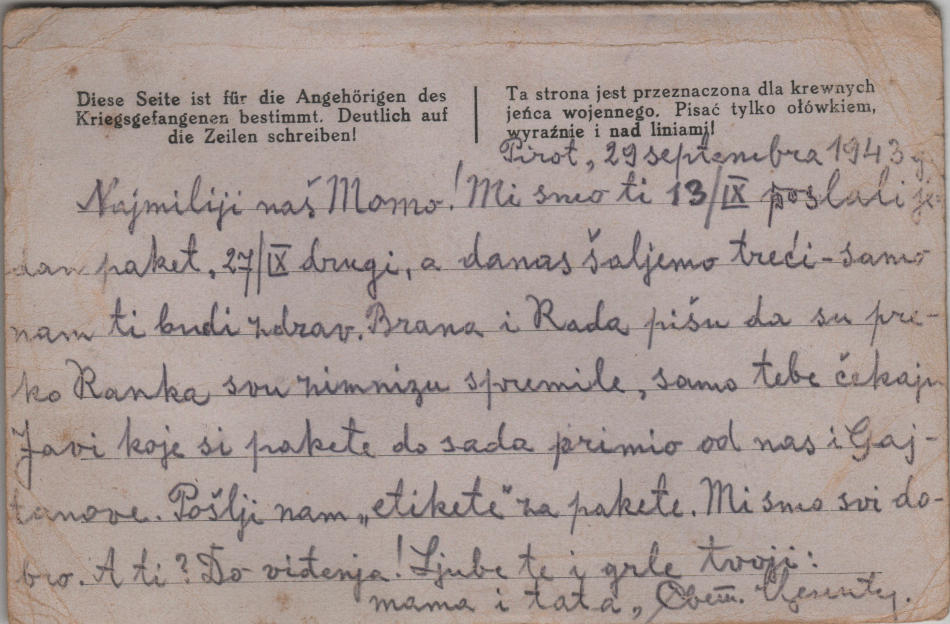 Diese Seite ist für die Angehörigen des
Kriegsgefangenen bestimmt. Deutlich auf
die Zeilen schreiben!
Ta strona jest przeznaczona dla krewnych
jeńca wojennego. Pisać tylko ołówkiem,
wyraźnie i nad liniami!
Pirot, 29 septembra 1943 g
Najmiliji naš Momo! Mi smo ti 13/IX poslali je-
dan paket, 27/IX drugi, a danas šaljemo treći - samo
nam ti budi zdrav. Brana i Rada pišu da su pre-
ko Ranka svu zimnizu spremile, samo tebe čekaju
Javi koje si pakete do sada primio od nas i Gaj-
tanove. Pošlji nam „etikete" za pakete. Mi smo svi do-
bro. A ti? Do viđenja! Ljube te i grle tvoji:
mama i tata,